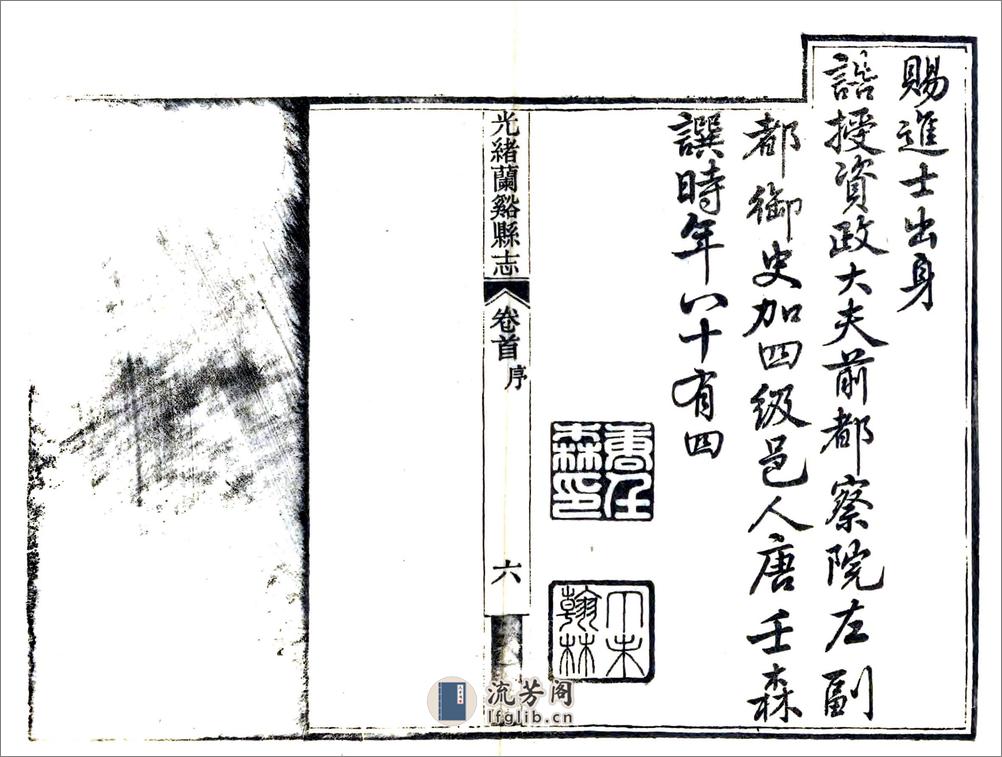 賜進士出身
誥授資政大夫前都察院左副
都御史加四級邑人唐壬森
譔時年八十有四
唐壬
森印
丁未
翰林
光緒蘭谿縣志
卷首
序
六
流芳阁
lfglib.cn